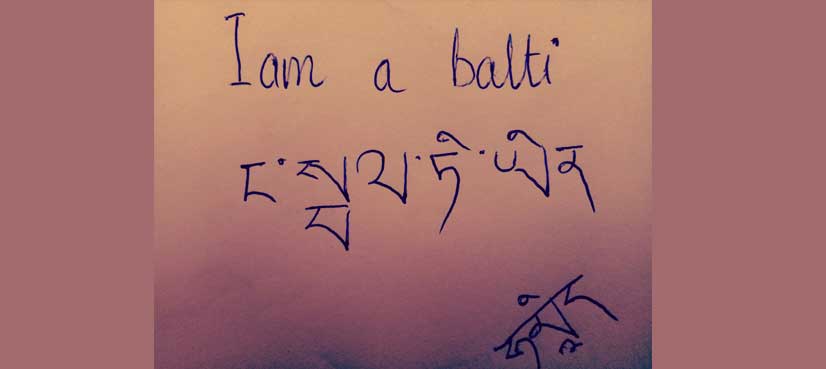 I am a balti
ང་སྦལ་ཏི་ཡིན